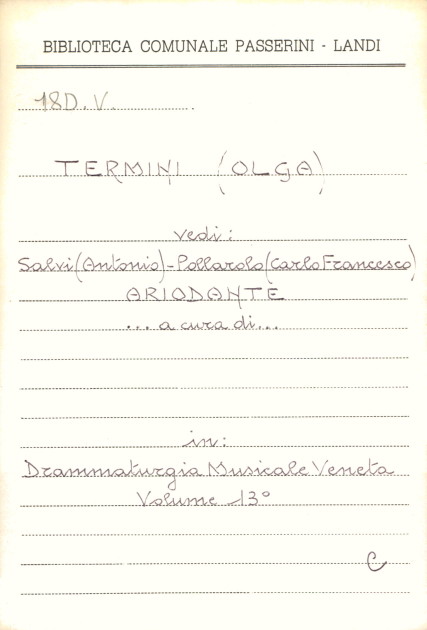 BIBLIOTECA COMUNALE PASSERINI - LANDI
18D.V.
TERMINI (OLGA)
vedi:
Salvi (Antonio) - Pollarolo (Carlo Francesco)
ARIODANTE
... a cura di...
in:
Drammaturgia Musicale Veneta
Volume 13°
C